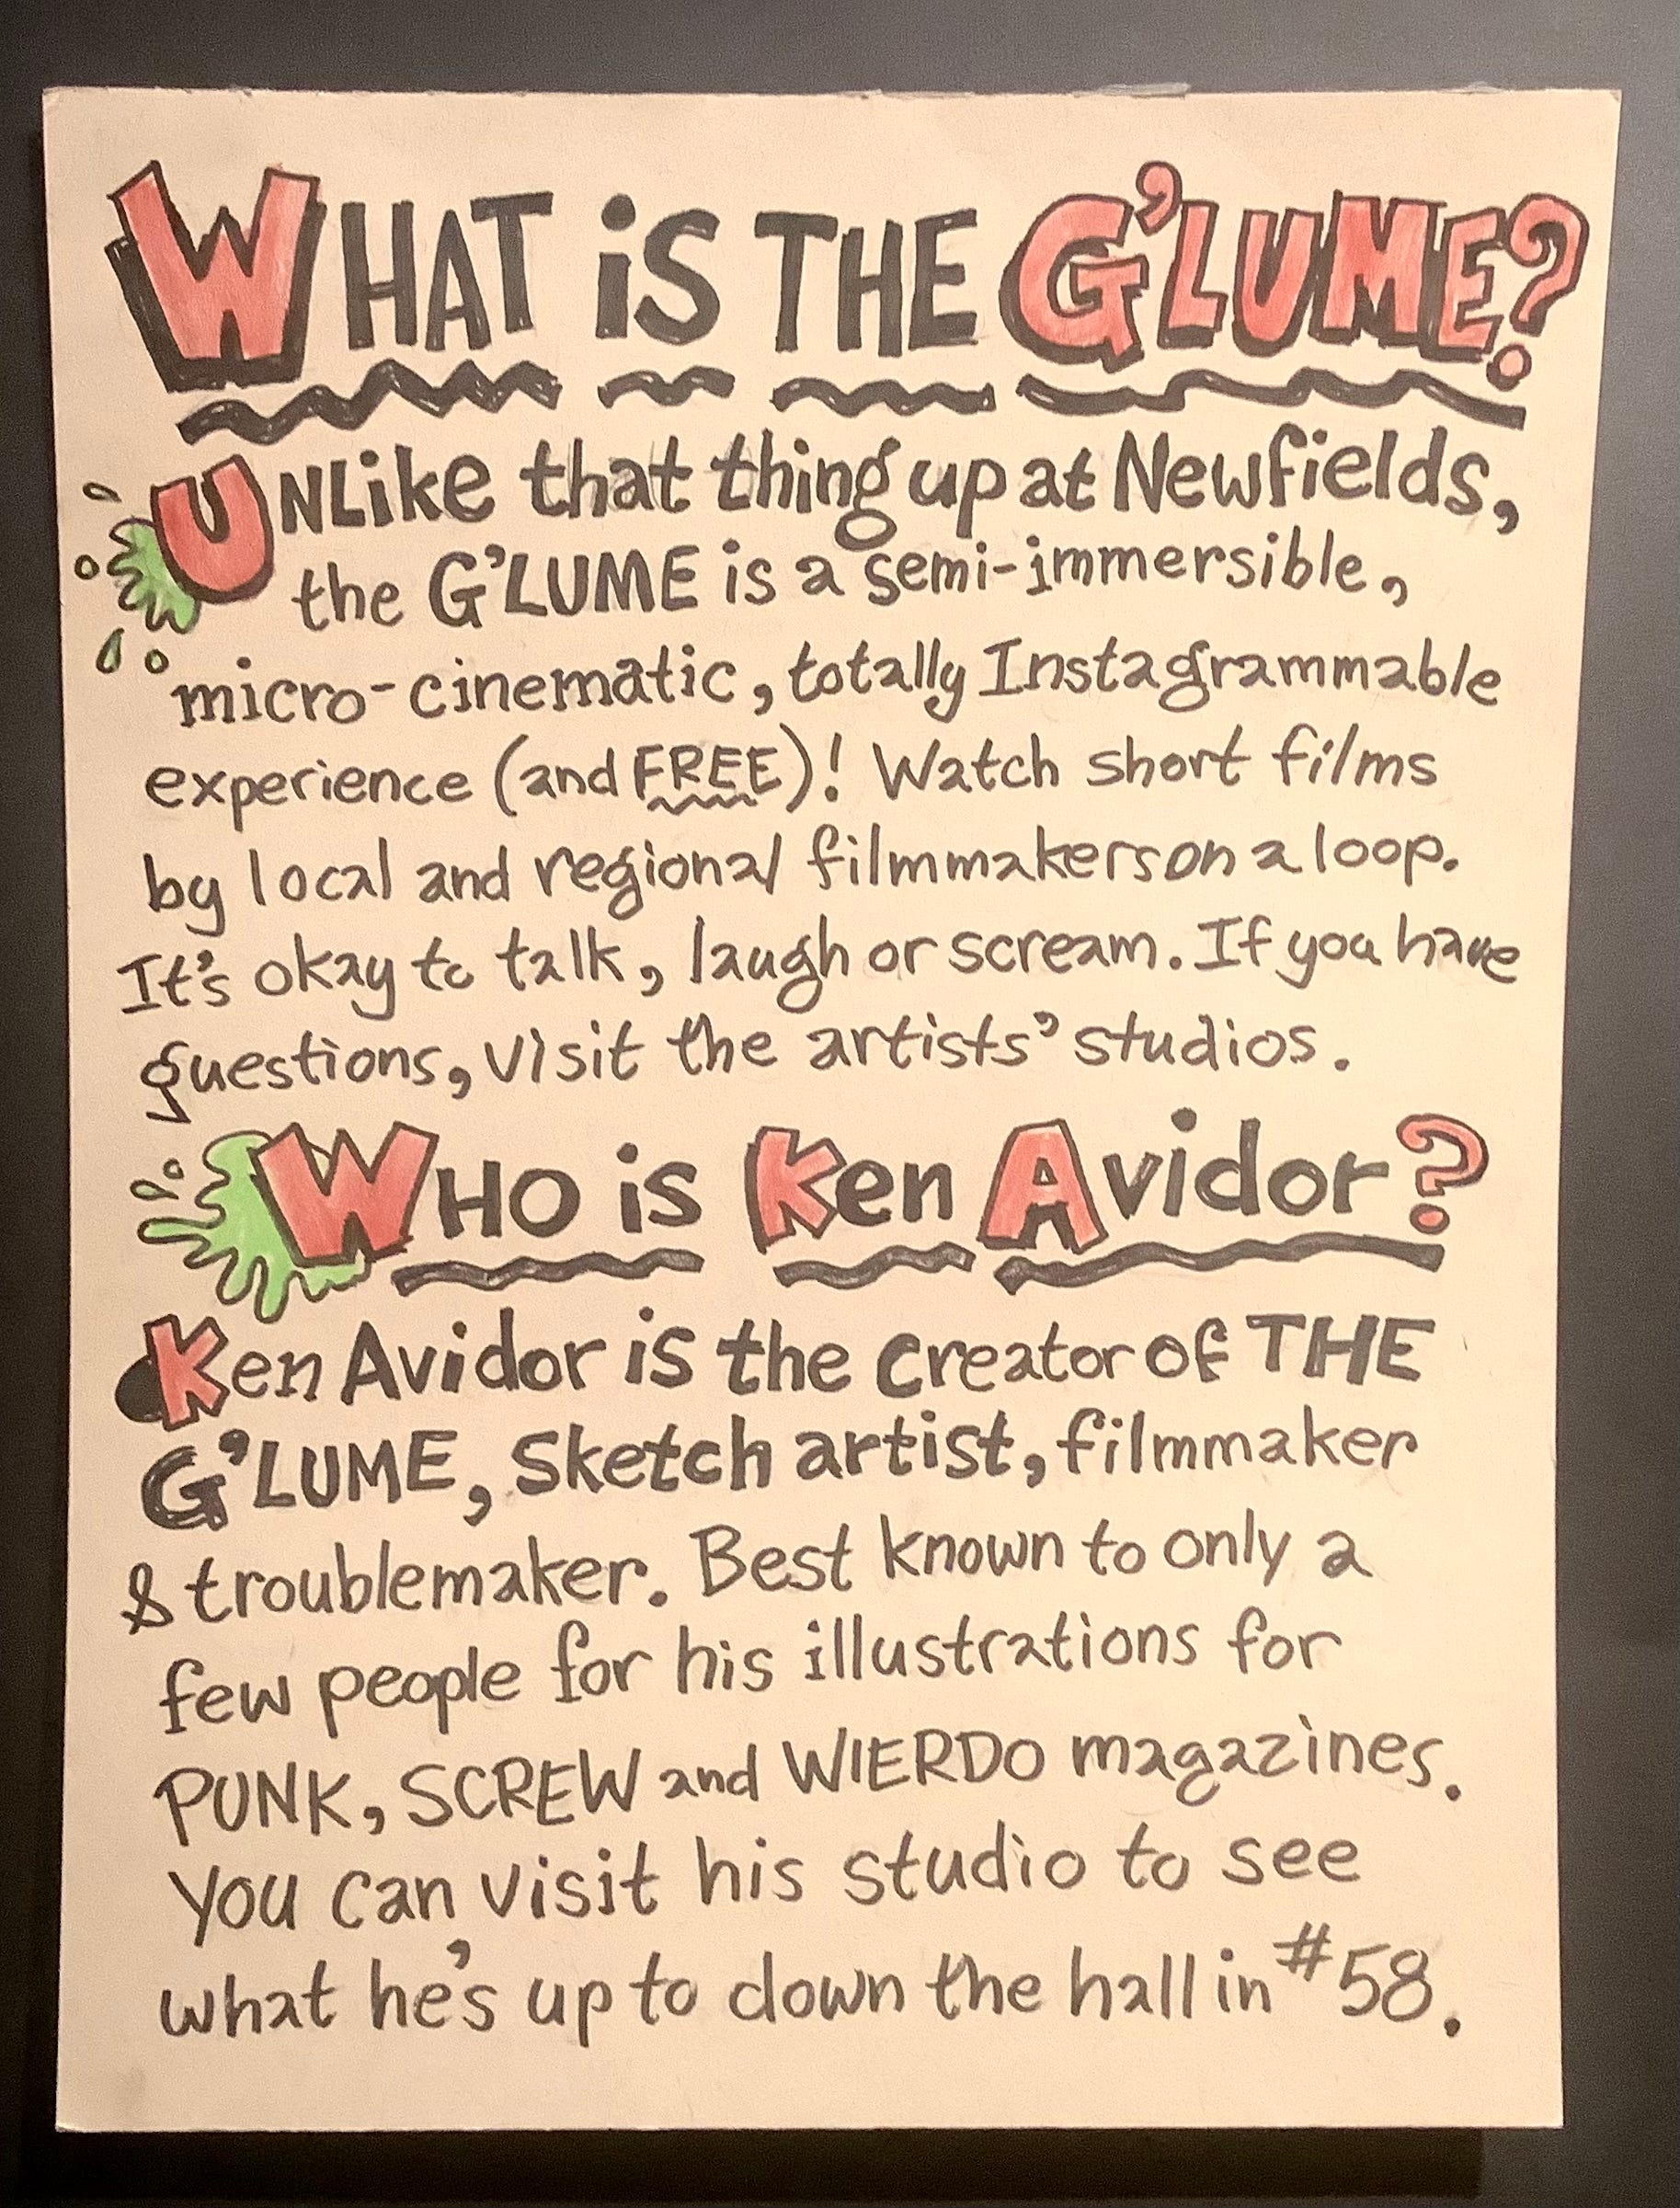 WHAT iS THE G'LUME?
UNLike that thing up at Newfields,
the G'LUME is a semi-immersible,
micro-cinematic, totally Instagrammable
experience (and FREE)! Watch short films
by local and regional filmmakers on a loop.
It's okay to talk, laugh or scream. If you have
questions, visit the artists' studios.
WHO is Ken Avidor?
Ken Avidor is the creator of THE
G'LUME, sketch artist, filmmaker
& troublemaker. Best known to only a
few people for his illustrations for
PUNK, SCREW and WIERDO magazines.
You can visit his studio to see
what he's up to down the hall in #58.